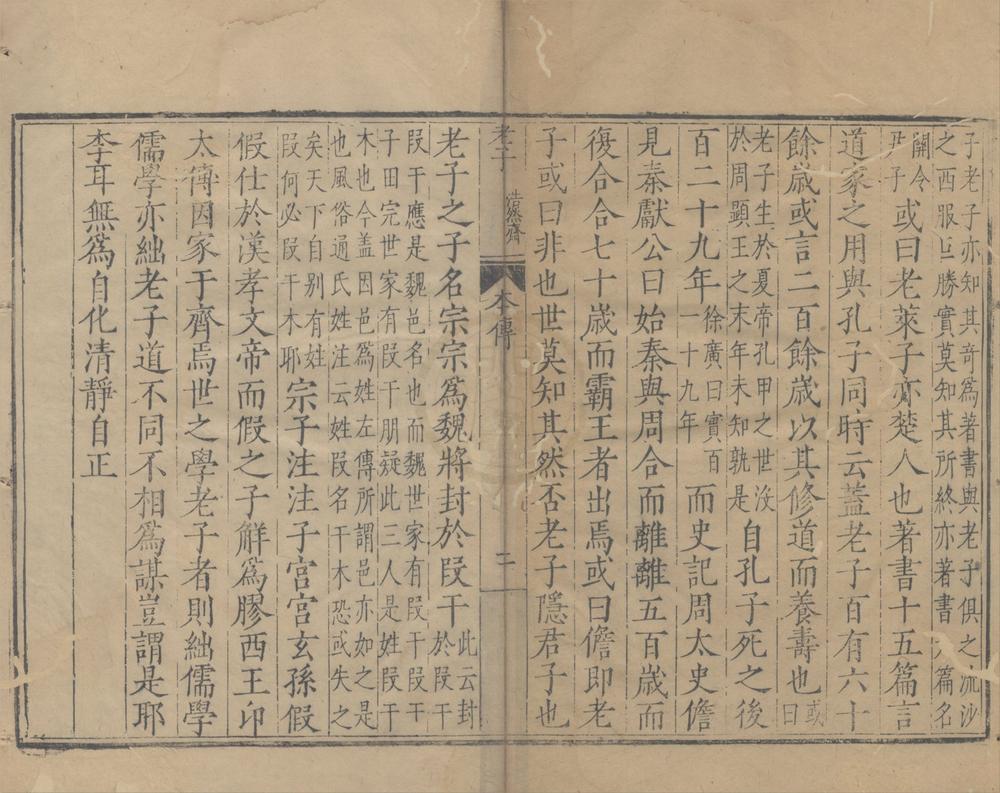 子老子亦知其奇爲著書與老子俱之流沙
之西服巨勝實莫知其所終亦著書九篇名
關令
尹子
或曰老萊子亦楚人也著書十五篇言
道家之用與孔子同時云蓋老子百有六十
餘歲或言二百餘歲以其修道而養壽也
或
曰
老子生於夏帝孔甲之世沒
於周顯王之末年未知孰是
自孔子死之後
百二十九年
徐廣曰實百
一十九年
而史記周太史儋
見秦獻公曰始秦與周合而離離五百歲而
復合合七十歲而霸王者出焉或曰儋即老
子或曰非也世莫知其然否老子隱君子也
老子
浩然齋
本傳
二
老子之子名宗宗爲魏將封於段干
此云封
於段干
段干應是魏邑名也而魏世家有段干段干
子田完世家有段干朋疑此三人是姓段干
木也今盖因邑爲姓左傳所謂邑亦如之是
也風俗通氏姓注云姓段名干木恐或失之
矣天下自别有姓
段何必段干木耶
宗子注注子宮宮玄孫假
假仕於漢孝文帝而假之子解爲膠西王卬
太傅因家于齊焉世之學老子者則絀儒學
儒學亦絀老子道不同不相爲謀豈謂是耶
李耳無爲自化清靜自正